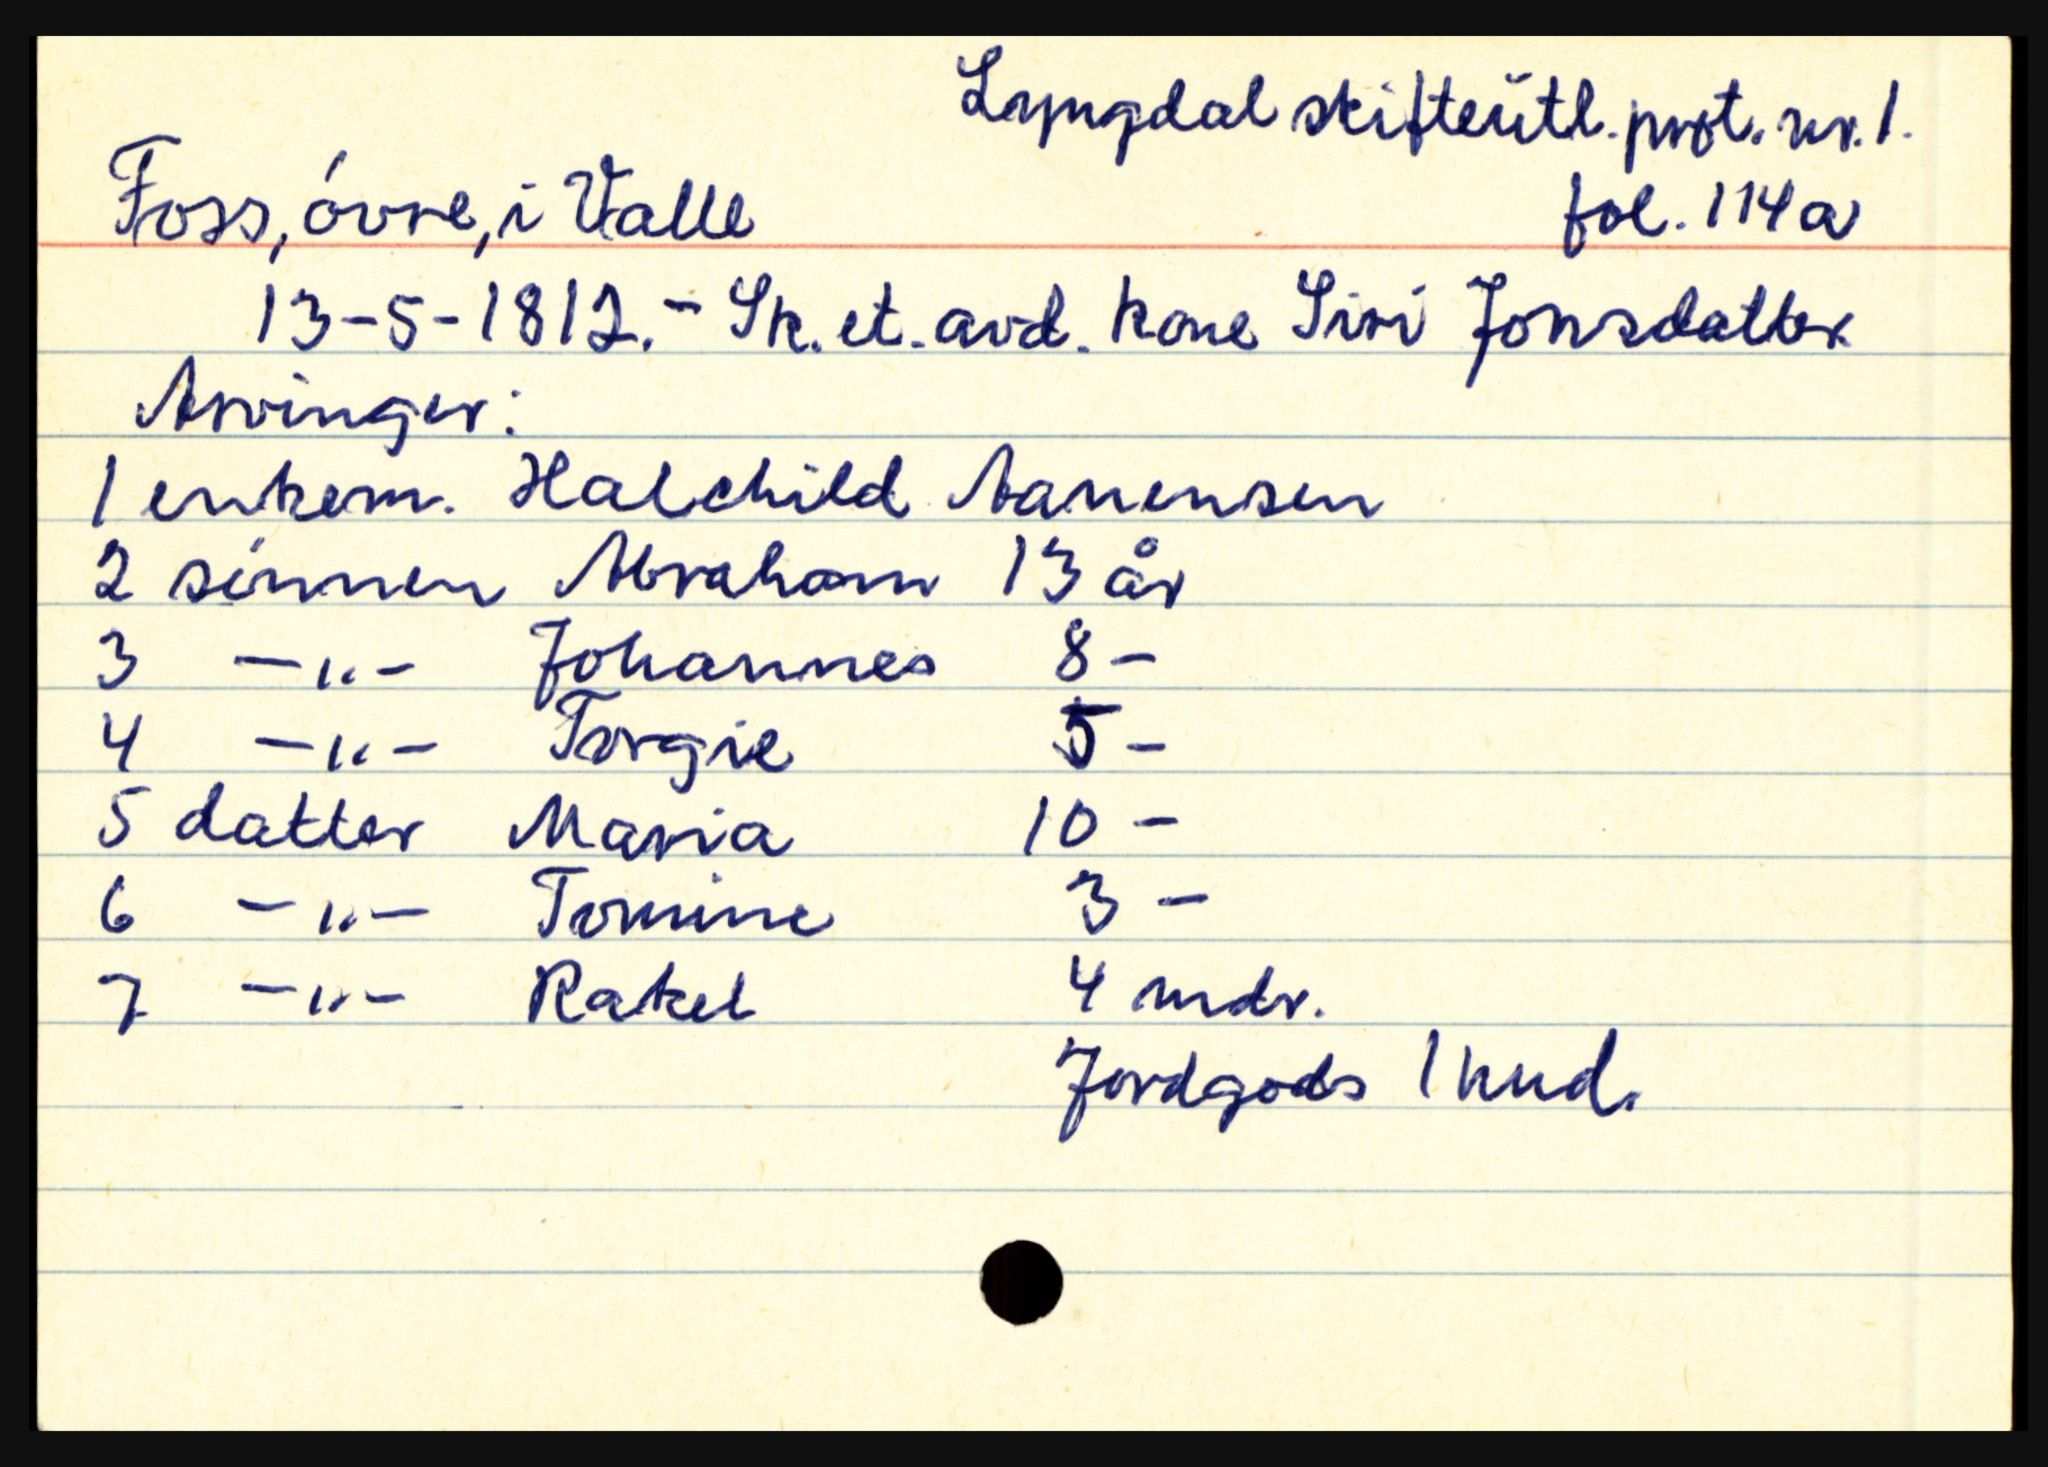 Lyngdal skifteutl. prot. nr. 1.
Foss, óvre, i Valle fol. 114a
13-5-1812. - Sk. et. avd. kone Siri Jonsdatter
Arvinger:
1 enkem. Halchild Aanensen
2 sónnen Abraham 13 år
3 -"- Johannes 8 -
4 -"- Torgie 5 -
5 datter Maria 10 -
6 -"- Tomine 3 -
7 -"- Rakel 4 mdr.
Jordgods 1 hud.